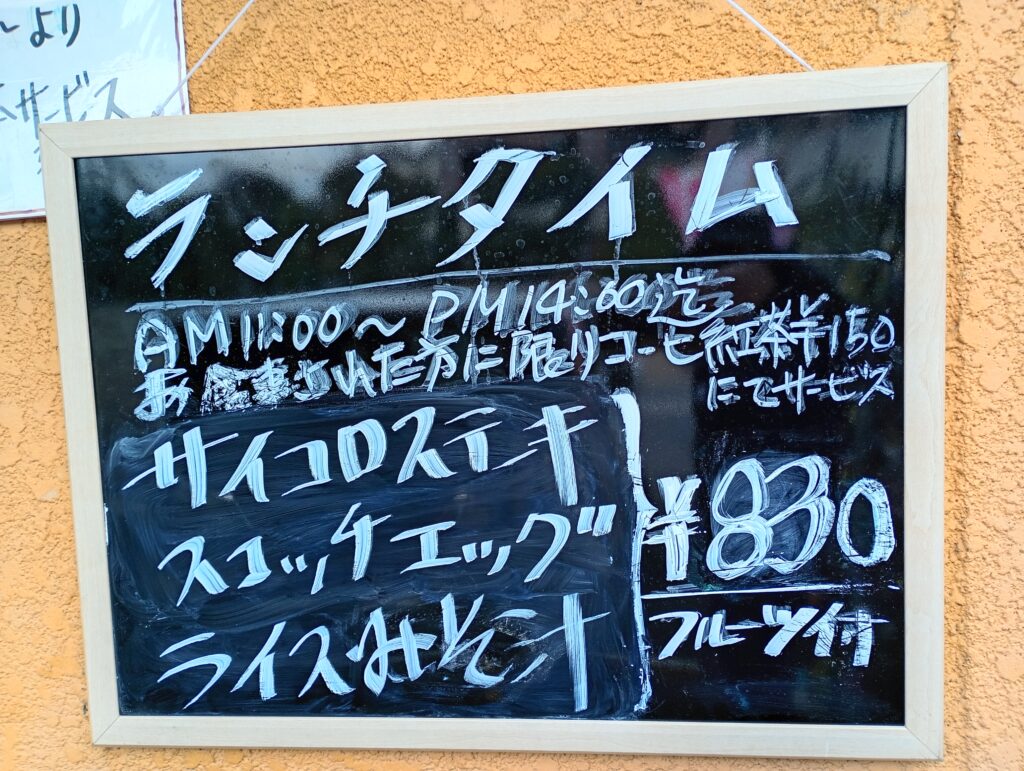 〜より
サービス
ランチタイム
AM11:00〜PM14:00迄
お食事された方に限りコーヒ紅茶¥150
にてサービス
サイコロステキ
スコッチエッグ
ライスみそ汁
¥830
フルーツ付